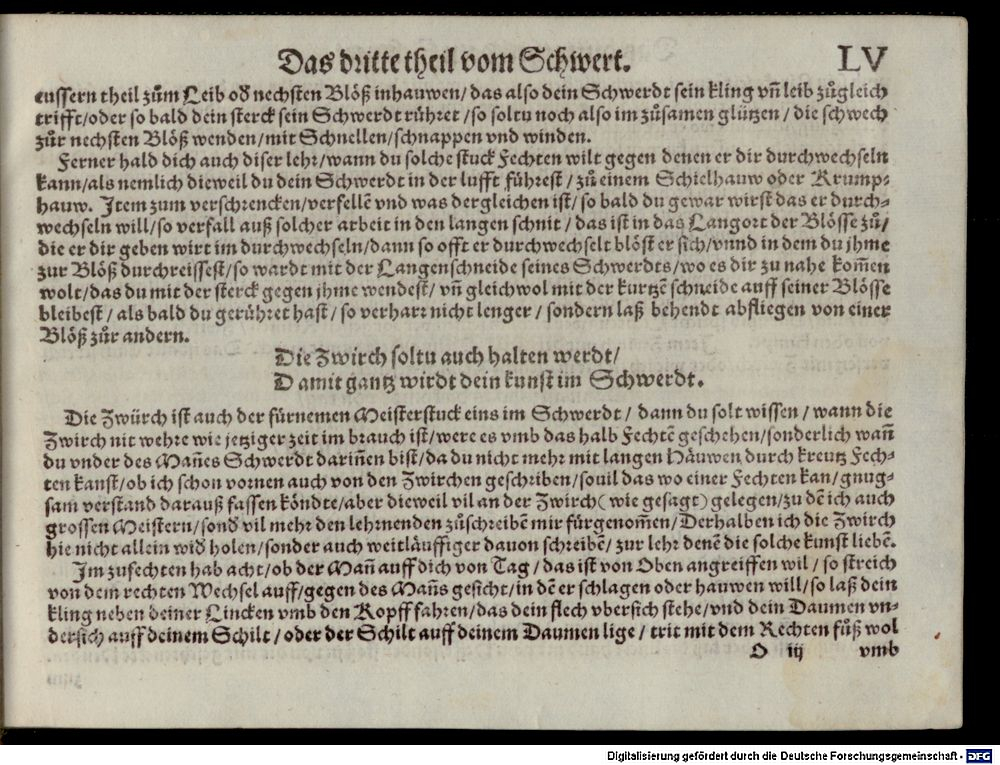 Das dritte theil vom Schwert. LV
eussern theil zům Leib oď nechsten Blöß inhauwen/ das also dein Schwerdt sein kling vñ leib zůgleich
trifft/oder so bald dein sterck sein Schwerdt rühret/so soltu noch also im zůsamen glützen/ die schwech
zůr nechsten Blöß wenden/mit Schnellen/schnappen vnd winden.
Ferner hald dich auch diser lehr/wann du solche stuck Fechten wilt gegen denen er dir durchwechseln
kann/als nemlich dieweil du dein Schwerdt in der lufft führest/ zů einem Schielhauw oder Krump⸗
hauw. Item zum verschrencken/verfellē vnd was dergleichen ist/ so bald du gewar wirst das er durch⸗
wechseln will/so verfall auß solcher arbeit in den langen schnit/ das ist in das Langort der Blösse zů/
die er dir geben wirt im durchwechseln/dann so offt er durchwechselt blöst er sich/vnnd in dem du jhme
zur Blöß durchreissest/so wardt mit der Langenschneide seines Schwerdts/wo es dir zu nahe kom̄en
wolt/das du mit der sterck gegen jhme wendest/ vñ gleichwol mit der kurtzē schneide auff seiner Blösse
bleibest/ als bald du gerühret hast/ so verharr nicht lenger/ sondern laß behendt abfliegen von einer
Blöß zůr andern.
Die Zwirch soltu auch halten werdt/
Damit gantz wirdt dein kunst im Schwerdt.
Die Zwürch ist auch der fürnemen Meisterstuck eins im Schwerdt/ dann du solt wissen/ wann die
Zwirch nit wehre wie jetziger zeit im brauch ist/were es vmb das halb Fechtē geschehen/sonderlich wañ
du vnder des Mañes Schwerdt dariñen bist/da du nicht mehr mit langen Häuwen durch kreutz Fech⸗
ten kanst/ob ich schon vornen auch von den Zwirchen geschriben/souil das wo einer Fechten kan/gnug⸗
sam verstand darauß fassen köndte/aber dieweil vil an der Zwirch(wie gesagt) gelegen/zu dē ich auch
grossen Meistern/sonď vil mehr den lehrnenden zůschreibē mir fürgenom̄en/Derhalben ich die Zwirch
hie nicht allein wiď holen/sonder auch weitläuffiger dauon schreibē/ zur lehr denē die solche kunst liebē.
Im zufechten hab acht/ob der Mañ auff dich von Tag/ das ist von Oben angreiffen wil/ so streich
von dem rechten Wechsel auff/gegen des Mañs gesicht/in dē er schlagen oder hauwen will/so laß dein
kling neben deiner Lincken vmb den Kopff fahren/das dein flech vbersich stehe/vnd dein Daumen vn⸗
dersich auff deinem Schilt/ oder der Schilt auff deinem Daumen lige/ trit mit dem Rechten fůß wol
O iij vmb
Digitalisierung gefördert durch die Deutsche Forschungsgemeinschaft - DFG